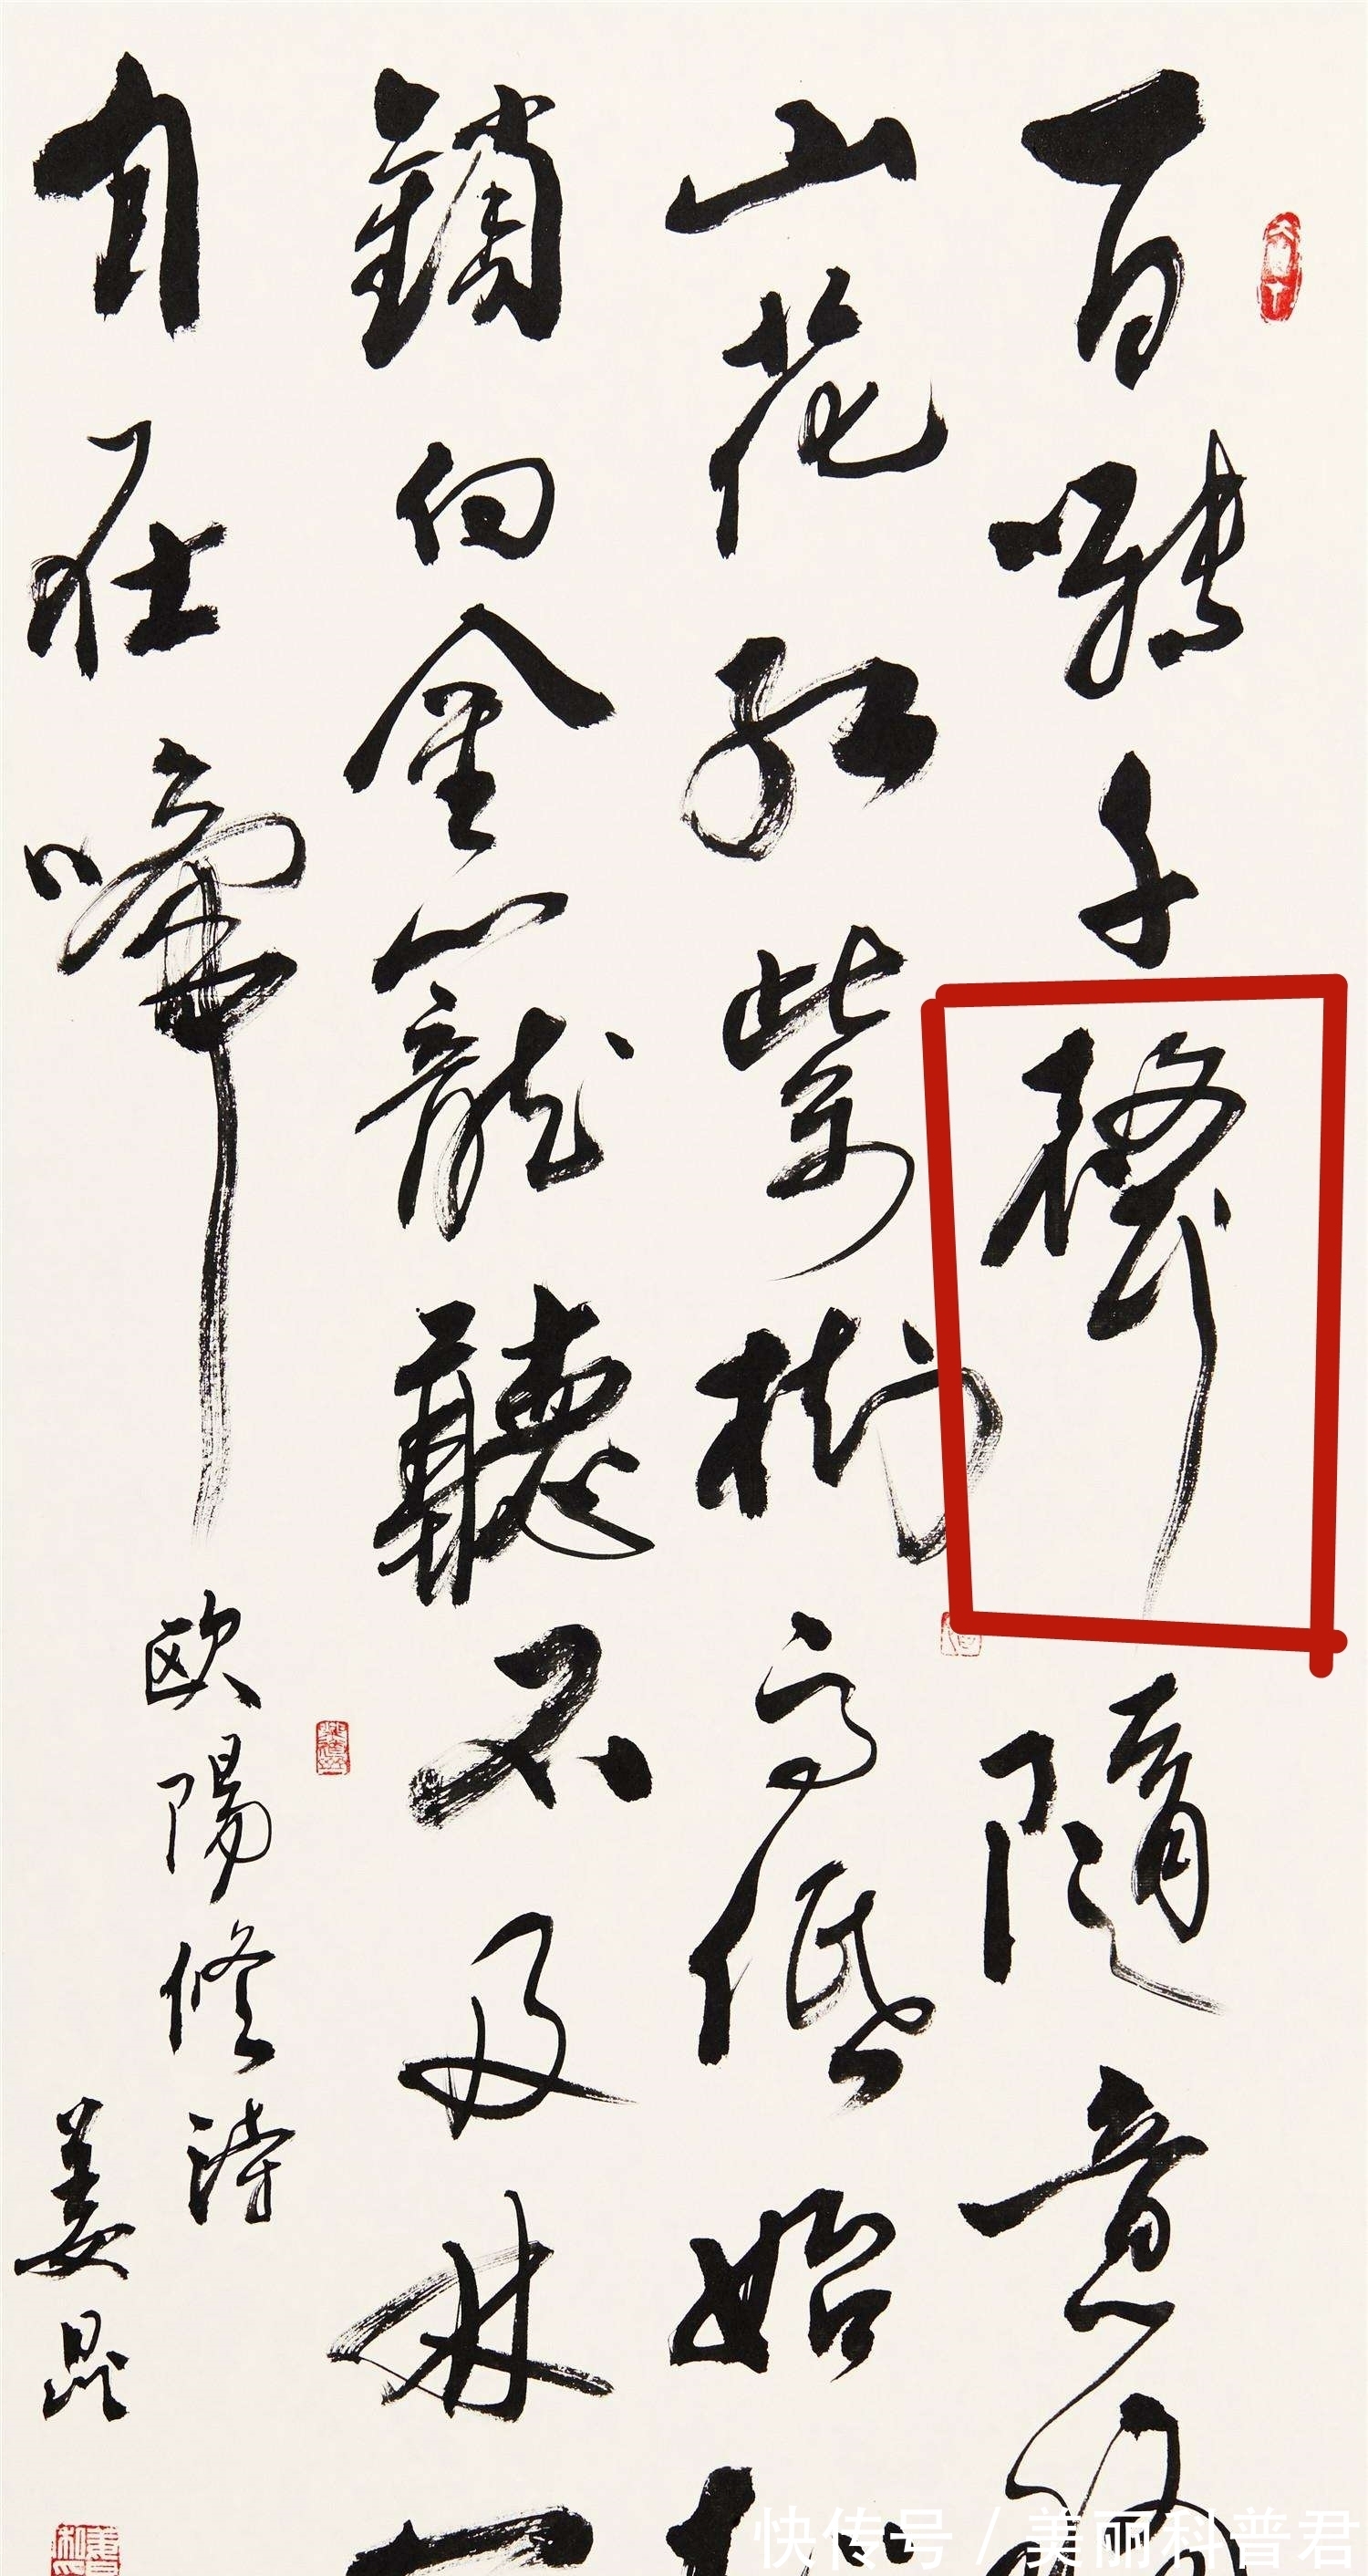 百囀千聲隨意移
山花紅紫樹高低始
鎖向金籠聽不及林
自在啼
欧陽修詩
姜昆
快传号 / 美丽科普君